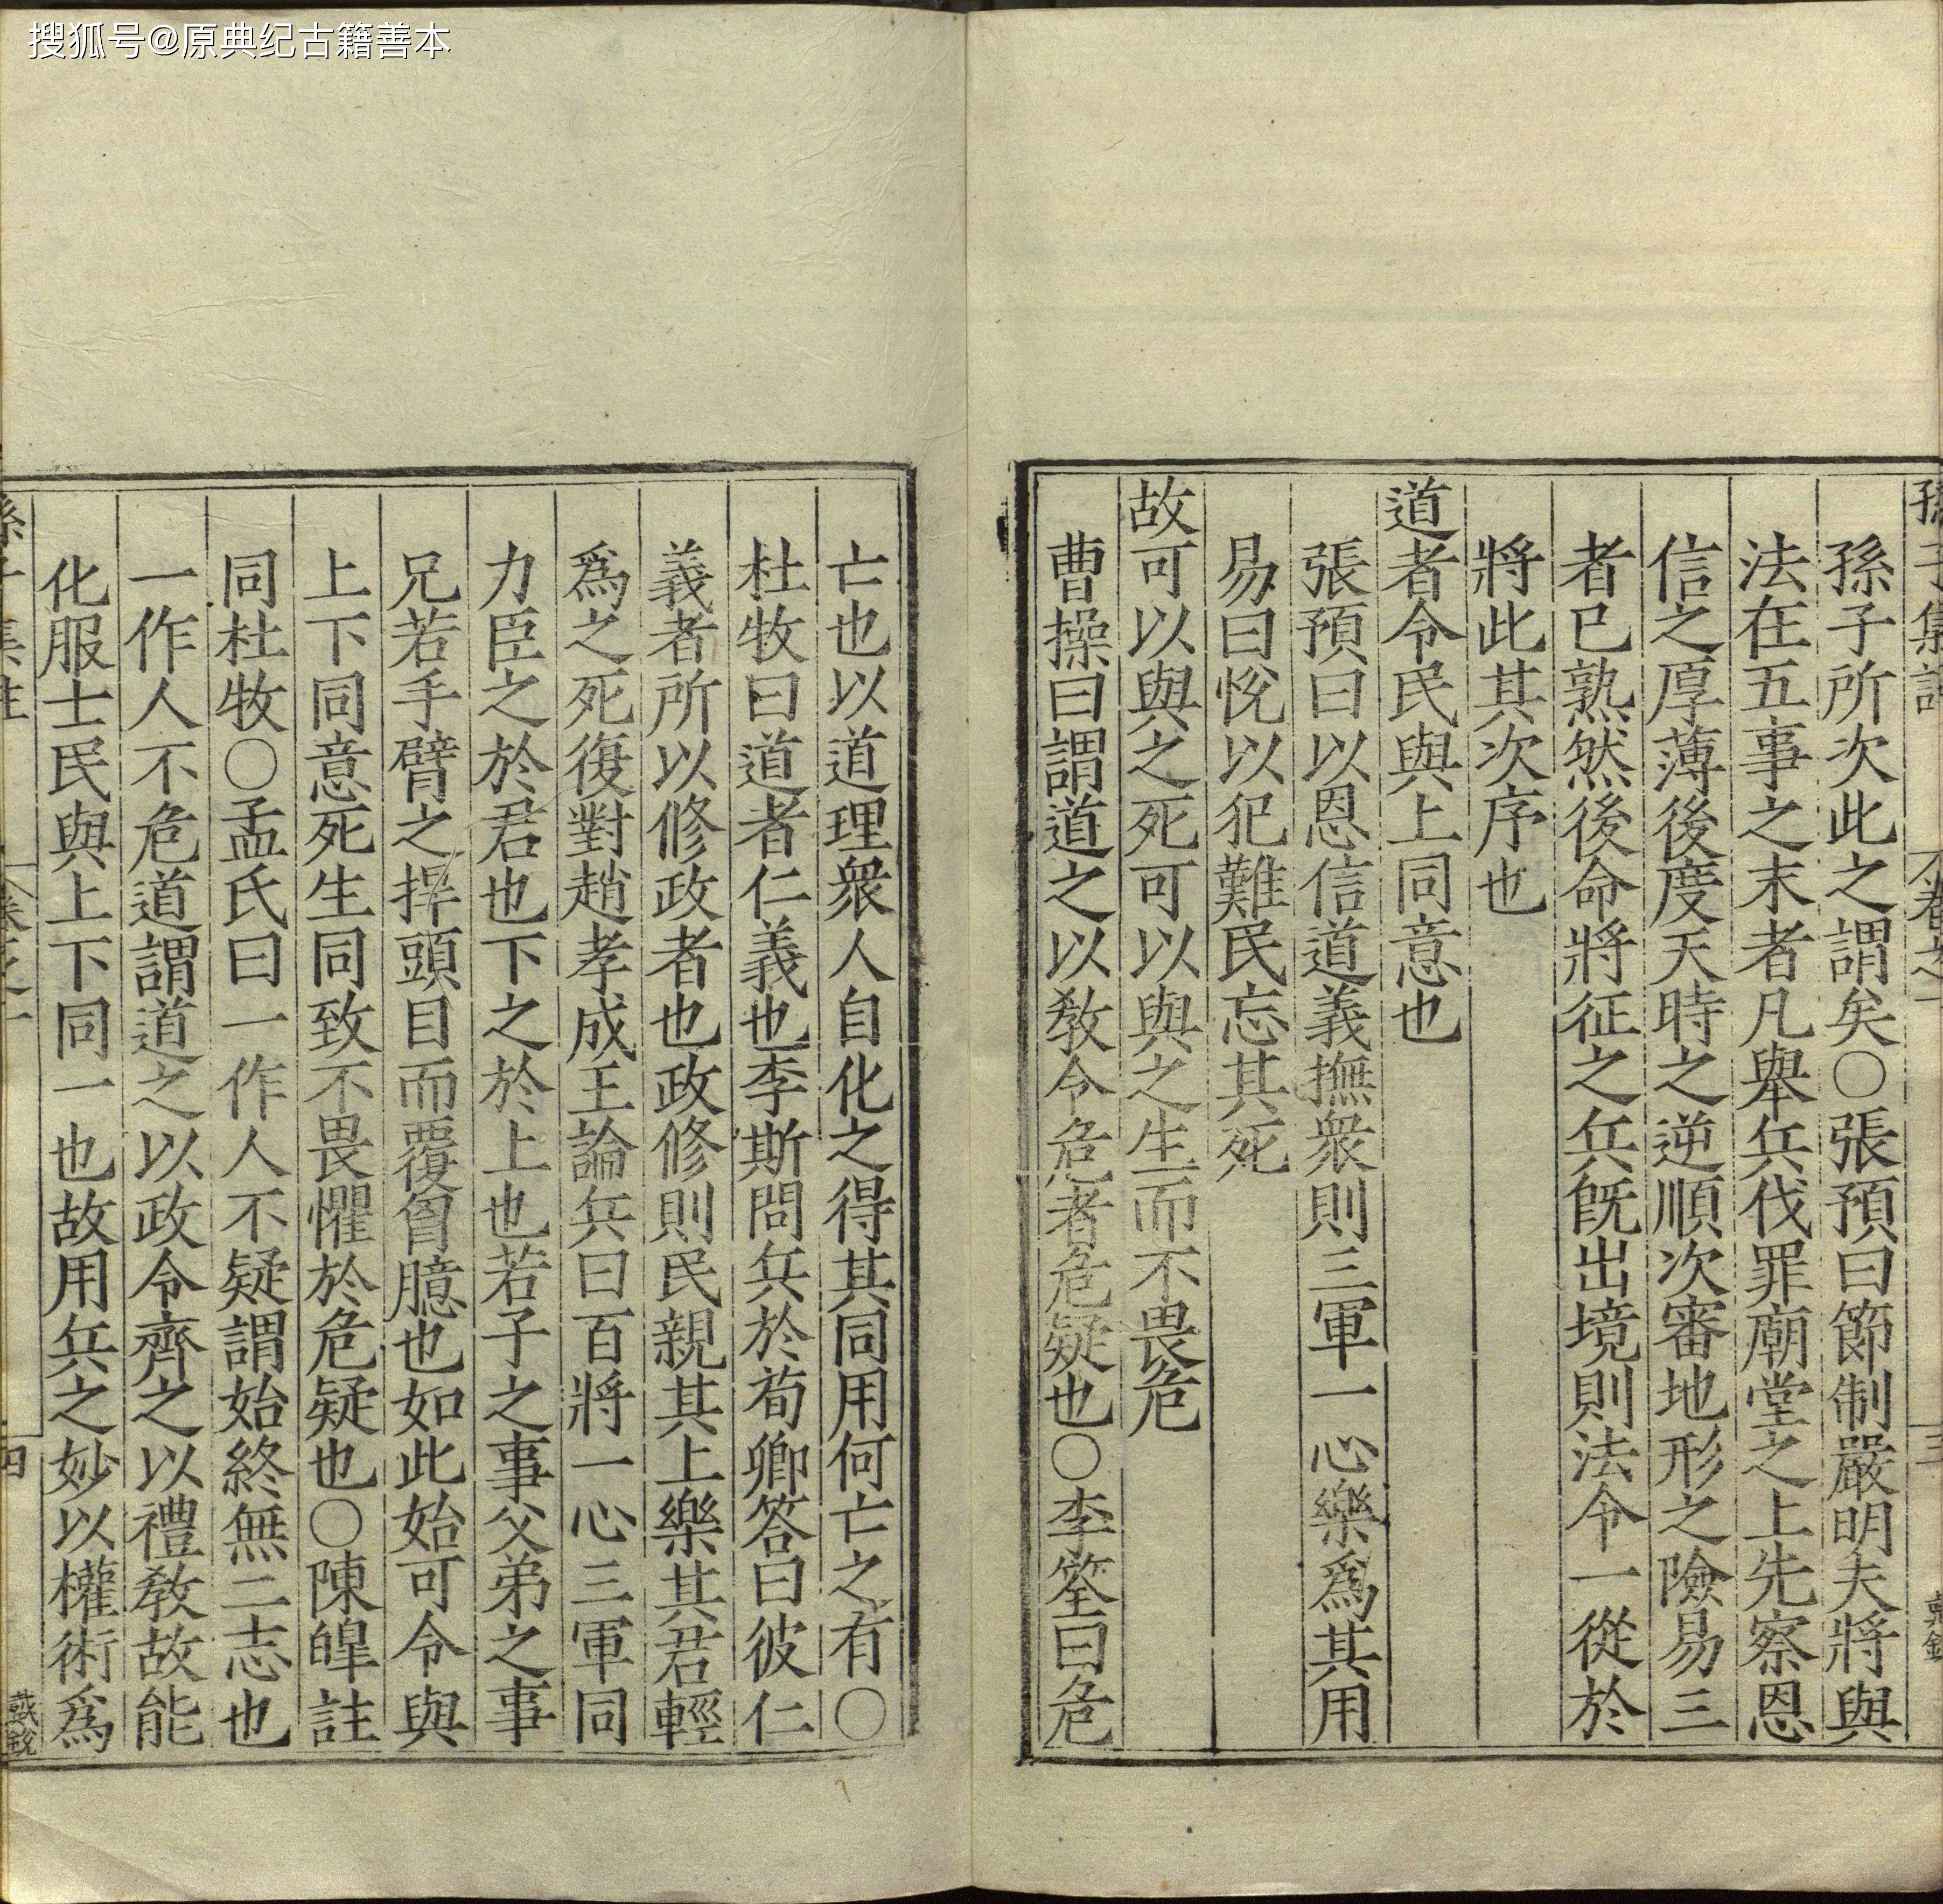 搜狐号@原典纪古籍善本
孫子所次此之謂矣○張預曰節制嚴明夫將與
法在五事之末者凡舉兵伐罪廟堂之上先察恩
信之厚薄後度天時之逆順次審地形之險易三
者已熟然後命將征之兵旣出境則法令一從於
將此其次序也
道者令民與上同意也
張預曰以恩信道義撫衆則三軍一心樂爲其用
易曰悅以犯難民忘其死
故可以與之死可以與之生而不畏危
曹操曰謂道之以敎令危者危疑也○李筌曰危
亡也以道理衆人自化之得其同用何亡之有○
杜牧曰道者仁義也李斯問兵於荀卿答曰彼仁
義者所以修政者也政修則民親其上樂其君輕
爲之死復對趙孝成王論兵曰百將一心三軍同
力臣之於君也下之於上也若子之事父弟之事
兄若手臂之捍頭目而覆胷臆也如此始可令與
上下同意死生同致不畏懼於危疑也○陳皥註
同杜牧○孟氏曰一作人不疑謂始終無二志也
一作人不危道謂道之以政令齊之以禮敎故能
化服士民與上下同一也故用兵之妙以權術爲